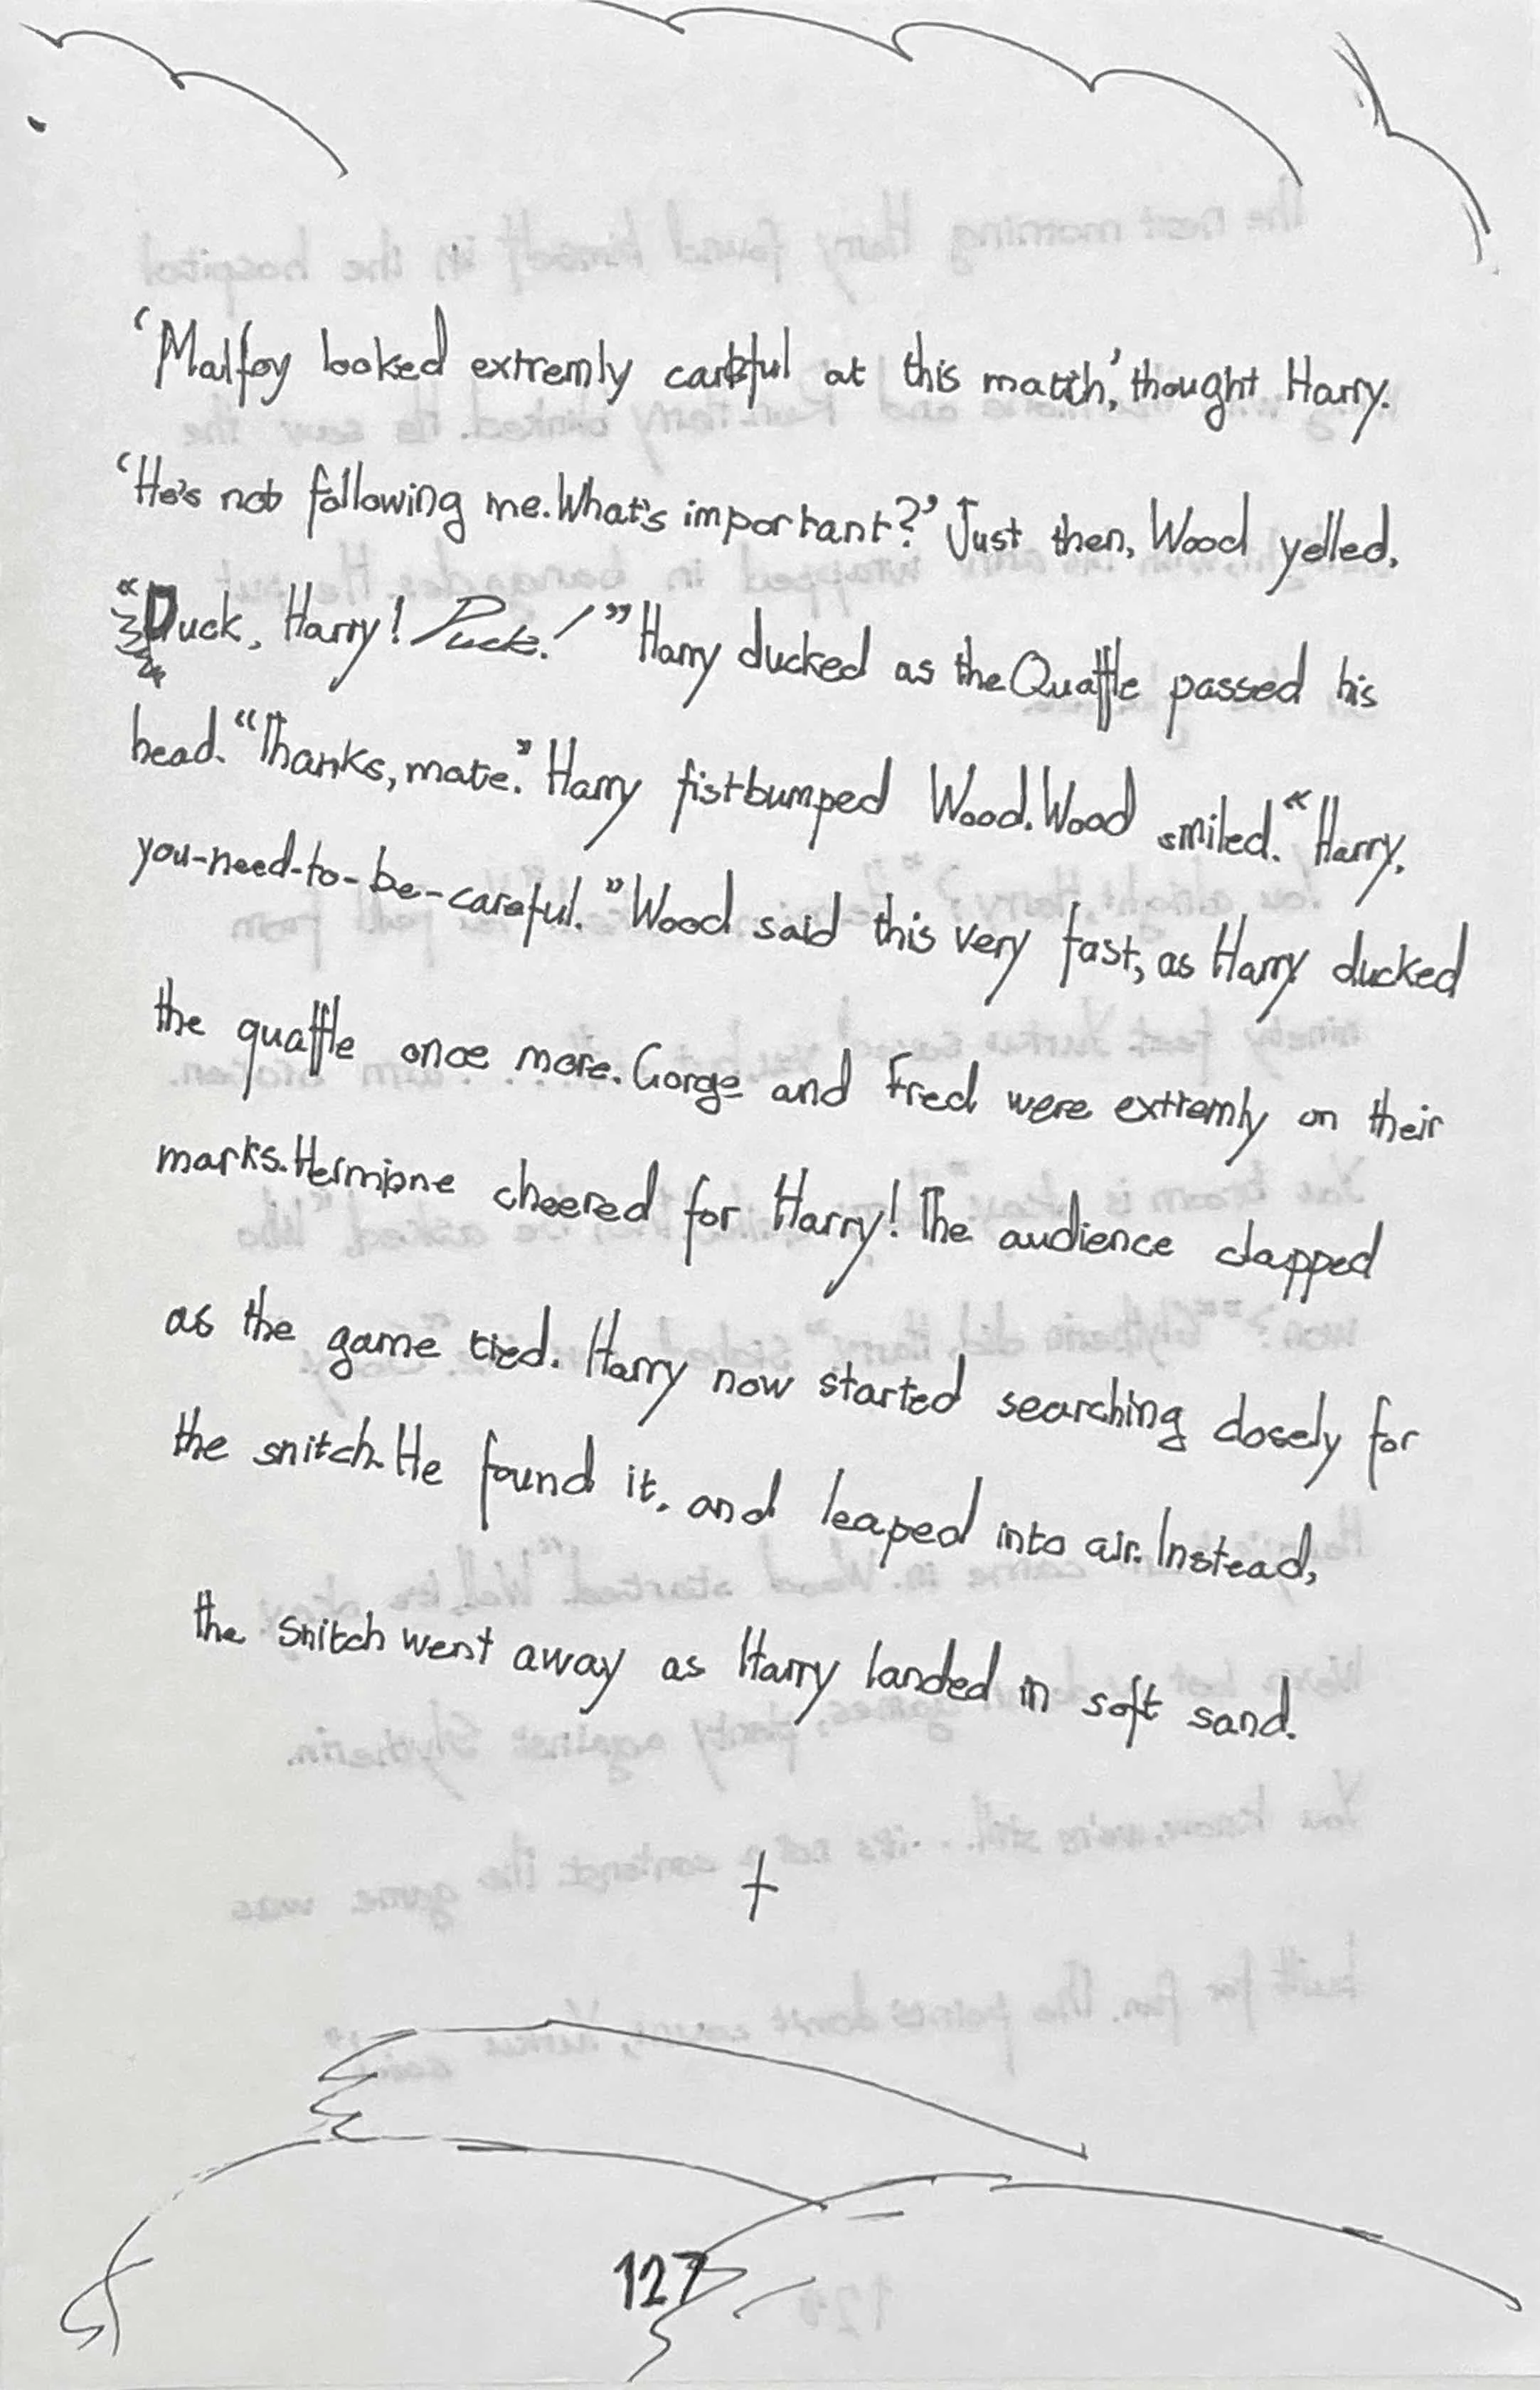 ‘Malfoy looked extremly careful at this match,’ thought Harry.
‘He's not following me. What's important?’ Just then, Wood yelled.
“Duck, Harry! Duck!” Harry ducked as the Quaffle passed his
head. “Thanks, mate.” Harry fistbumped Wood. Wood smiled. “Harry,
you-need-to-be-careful.” Wood said this very fast, as Harry ducked
the quaffle once more. Gorge and Fred were extremly on their
marks. Hermione cheered for Harry! The audience clapped
as the game tied. Harry now started searching closely for
the snitch. He found it, and leaped into air. Instead,
the snitch went away as Harry landed in soft sand.
127